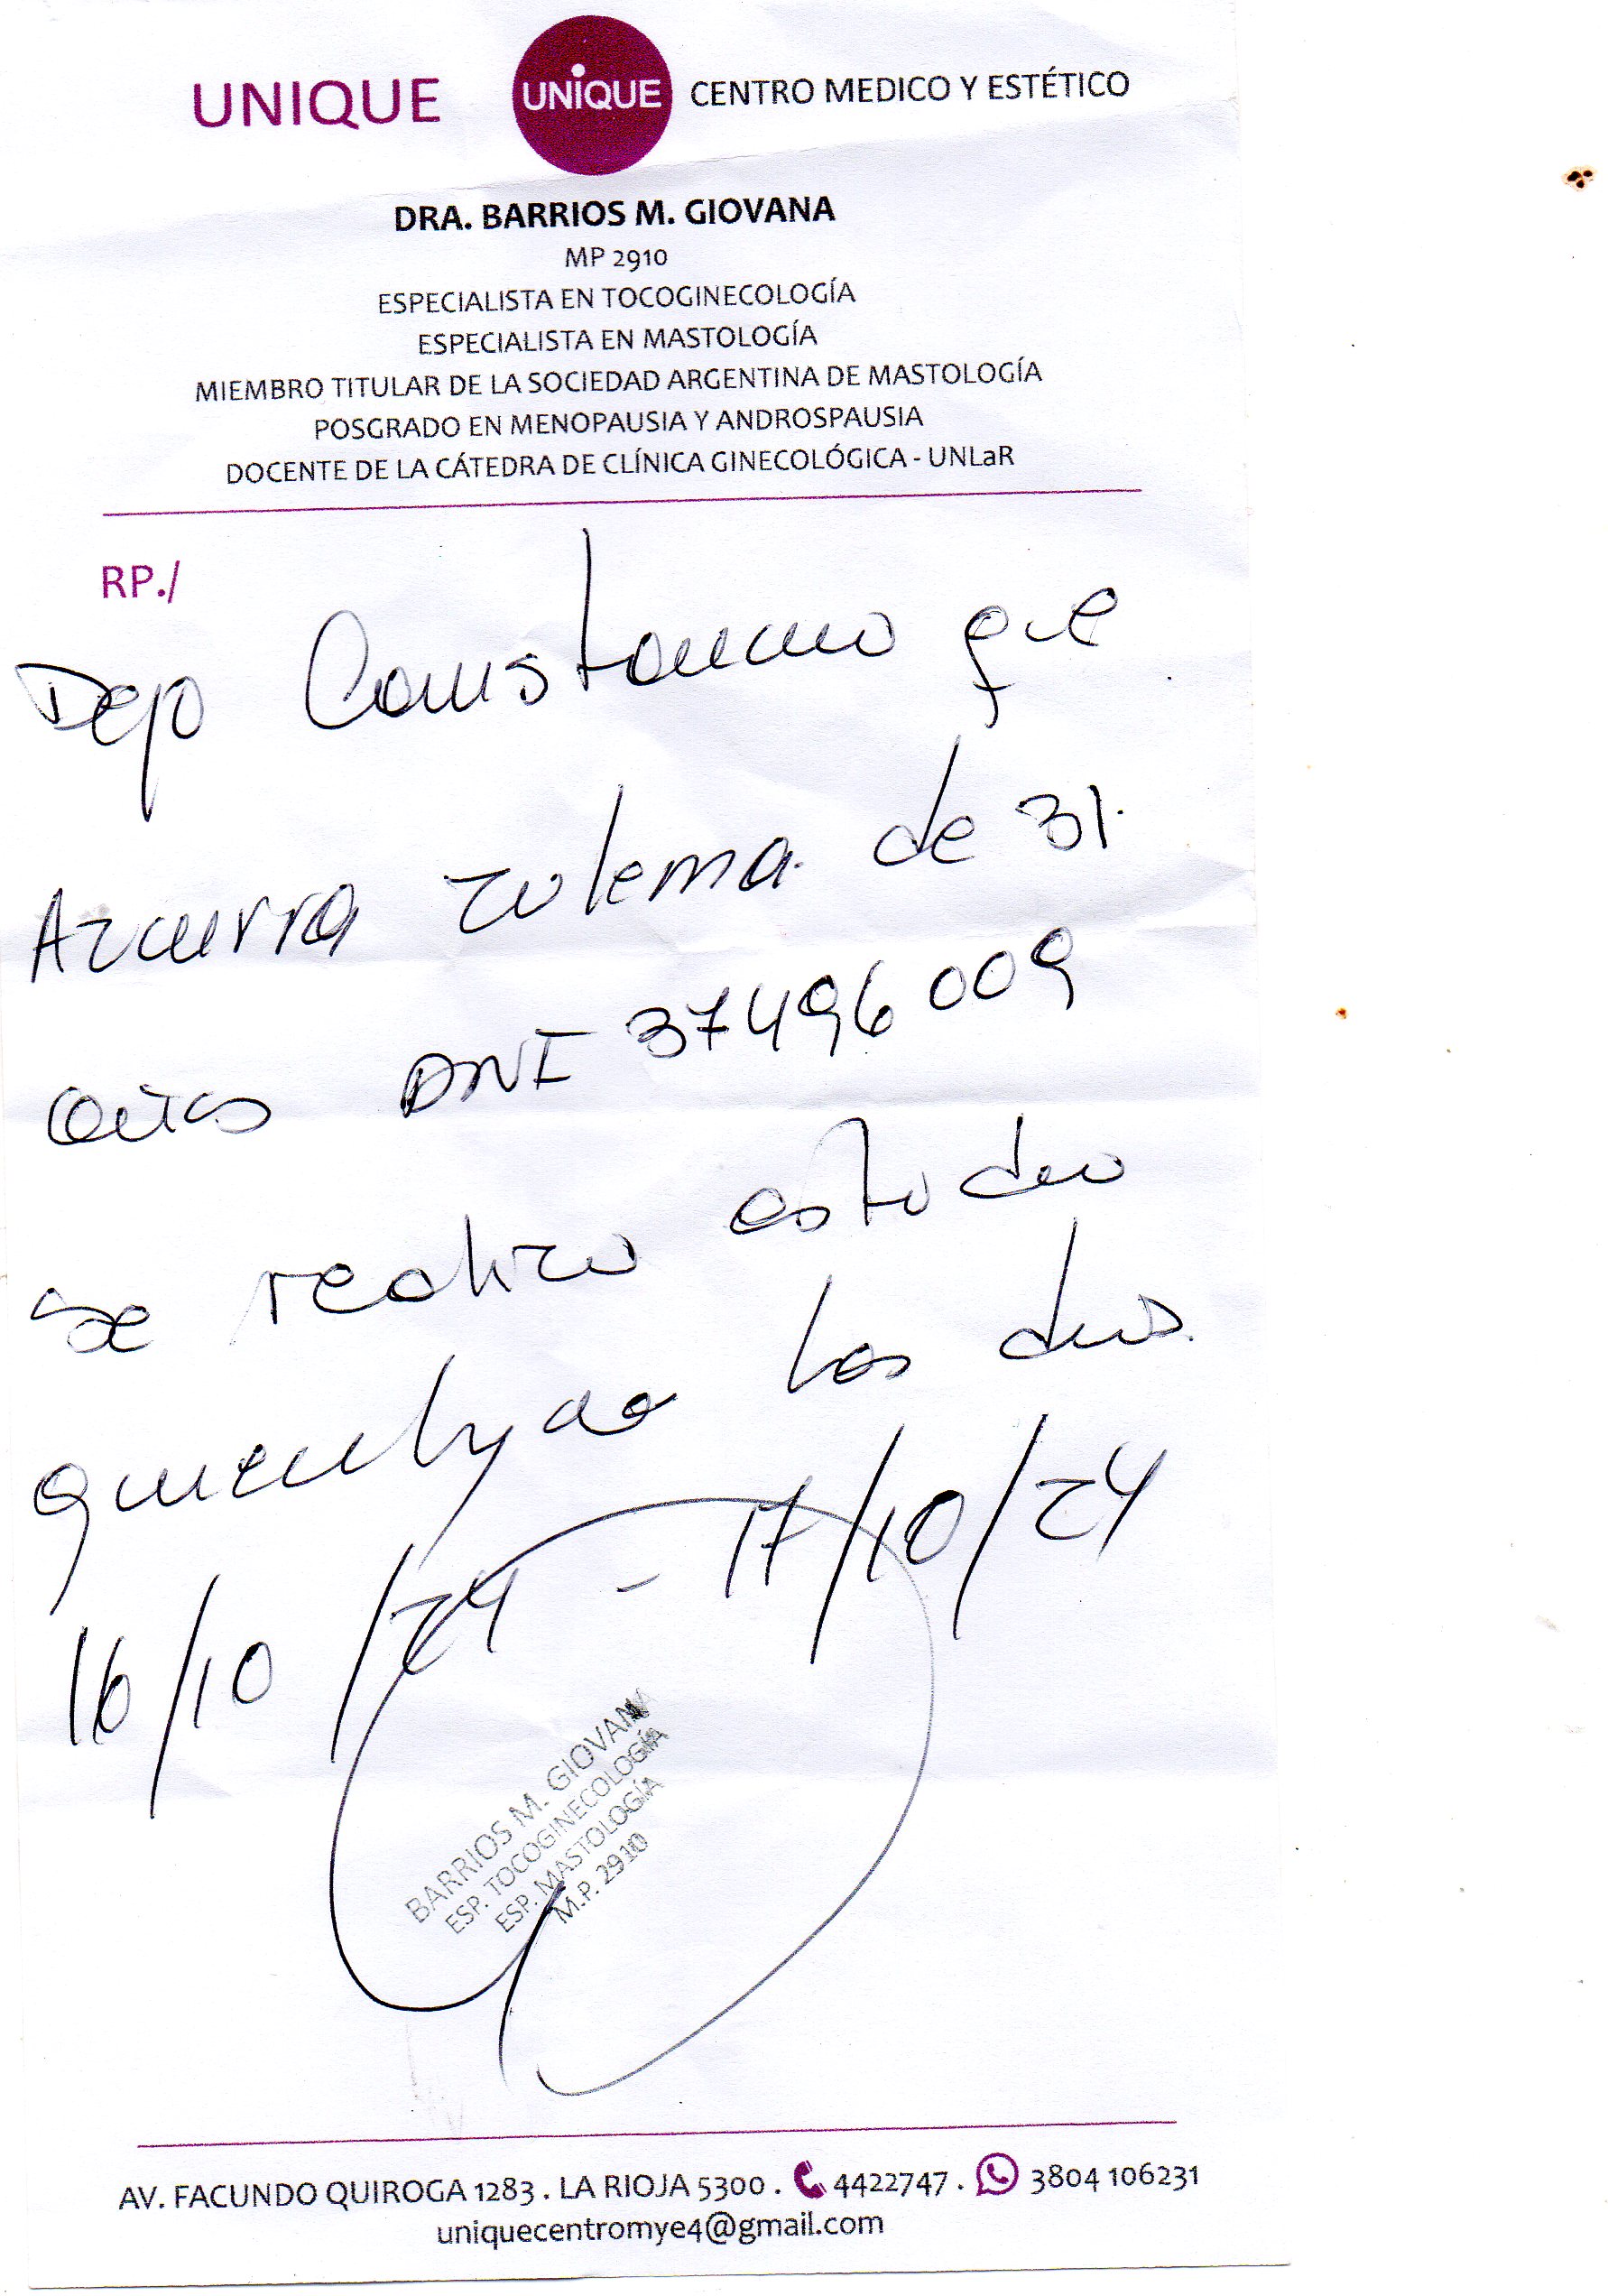 UNIQUE UNIQUE CENTRO MEDICO Y ESTÉTICO
DRA. BARRIOS M. GIOVANA
MP 2910
ESPECIALISTA EN TOCOGINECOLOGÍA
ESPECIALISTA EN MASTOLOGÍA
MIEMBRO TITULAR DE LA SOCIEDAD ARGENTINA DE MASTOLOGÍA
POSGRADO EN MENOPAUSIA Y ANDROSPAUSIA
DOCENTE DE LA CÁTEDRA DE CLÍNICA GINECOLÓGICA - UNLaR
RP./
Dejo Constancia que
Azcurra zulema de 31
años DNI 37496009
se realizo estudio
los dias
16/10/24 - 17/10/24
BARRIOS M. GIOVANA
ESP. TOCOGINECOLOGÍA
ESP. MASTOLOGÍA
M.P. 2910
AV. FACUNDO QUIROGA 1283 . LA RIOJA 5300 . 4422747 . 3804 106231
uniquecentromye4@gmail.com